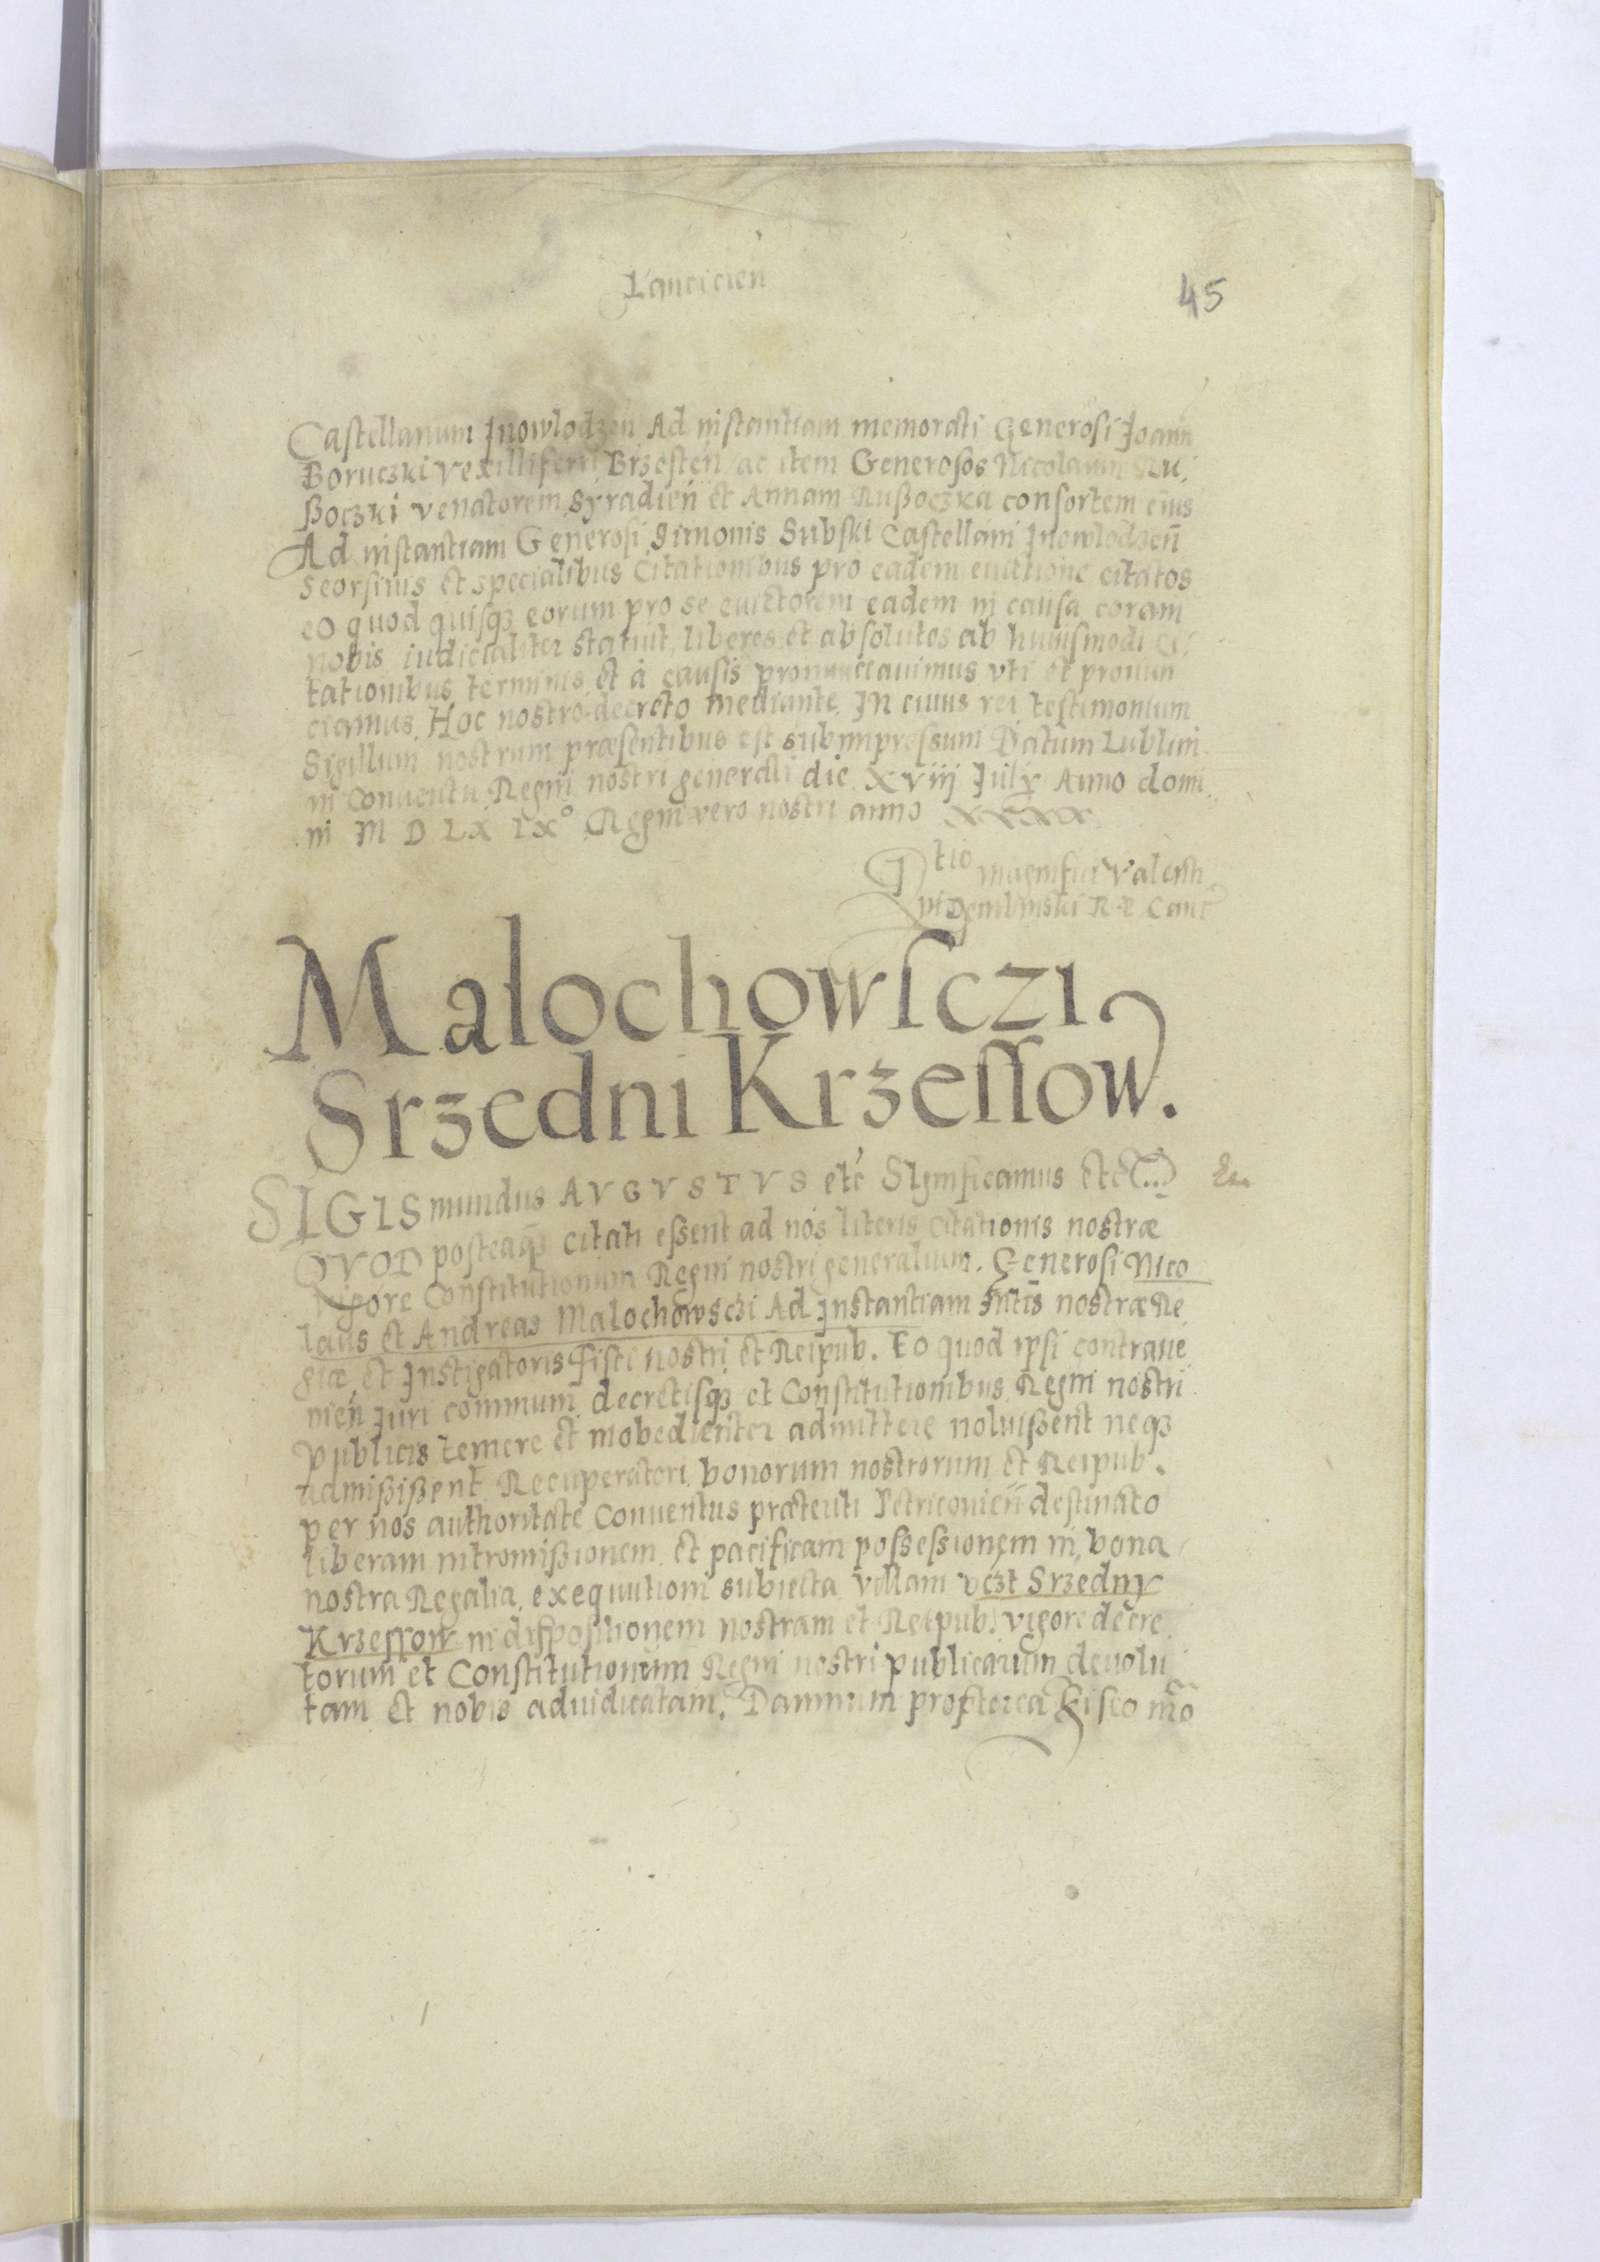 Lancicien
45
Castellanum Jnowlodzen Ad instantiam memorati Generosi Joann
Boruczki vexilliferi Brzesten ac item Generosos Nicolaum Ru,
ßoczki venatorem syradien et Annam Rußoczka consortem eius
Ad instantiam Generosi Simonis Subski Castellani Jnowlodzen
Seorsiuis et specialibus Citationibus pro eadem euictione citatos
eo quod quisq3 eorum pro se euictorem eadem in causa coram
nobis iudicialiter statuit, liberos et absolutos ab huiusmodi Ci,
tationibus terminis et à causis pronunciauimus vti et pronun
ciamus. Hoc nostro decreto mediante. In cuius rei testimonium
Sigillum nostrum præsentibus est subimpressum Datum Lublini
in Conuentu Regni nostri generali die XViij Julij Anno domi
ni M D LX IX° Regni vero nostri anno XXXX
Rtio magnifici Valenti
ni Dembinski R. P. Canc
Malochowsczi
Srzedni Krzessow.
SIGISmundus AVGVSTVS etc Significamus etc
QVOD posteaq3 citati essent ad nos literis citationis nostræ
vigore Constitutionum Regni nostri generalium. Generosi Nico
laus et Andreas Malochowsczi Ad Instantiam Mtis nostræ Re
giæ et Instigatoris Fisci nostri et Reipub. Eo quod ipsi contraue
nien Juri communi decretisq3 et Constitutionibus Regni nostri
publicis temere et inobedienter admittere noluißent neq3
admißißent Recuperatori bonorum nostrorum et Reipub.
per nos authoritate Conuentus præteriti Petricouien destinato
liberam intromißionem et pacificam possessionem in bona
nostra Regalia exequutioni subiecta villam vczt Srzedny
Krzessow in dispositionem nostram et Reipub. vigore decre
torum et Constitutionum Regni nostri publicarum deuolu
tam et nobis adiudicatam. Damnum propterea Fisco nro